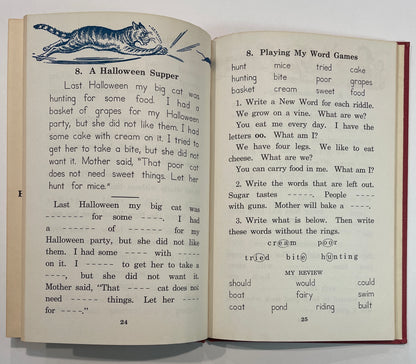 8. A Halloween Supper
Last Halloween my big cat was
hunting for some food. I had a
basket of grapes for my Halloween
party, but she did not like them. I had
some cake with cream on it. I tried to
get her to take a bite, but she did not
want it. Mother said, "That poor cat
does not need sweet things. Let her
hunt for mice."
Last Halloween my big cat was
------- for some ----. I had
a ------ of ------ for my
Halloween party, but she did not like
them. I had some ---- with -----
on it. I ----- to get her to take a
----, but she did not want it.
Mother said, "That ---- cat does not
need ----- things. Let her ----
for ----."
24
8. Playing My Word Games
hunt mice tried cake
hunting bite poor grapes
basket cream sweet food
1. Write a New Word for each riddle.
We grow on a vine. What are we?
You eat me every day. I have the
letters oo. What am I?
We have four legs. We like to eat
cheese. What are we?
You can carry food in me. What am I?
2. Write the words that are left out.
Sugar tastes -----. People ----
with guns. Mother will bake a ----.
3. Write what is below. Then write
these words without the rings.
cream poor
tried bite hunting
MY REVIEW
should would could
boat fairy swim
coat pond riding built
25